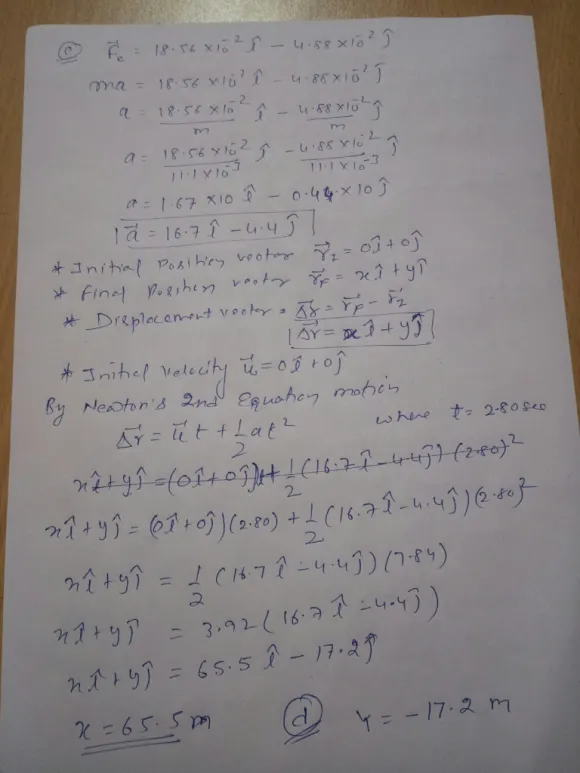 (c) F⃗e = 18.56×10⁻² î − 4.88×10⁻² ĵ
ma = 18.56×10⁻² î − 4.88×10⁻² ĵ
a = 18.56×10⁻²/m î − 4.88×10⁻²/m ĵ
a = 18.56×10⁻²/11.1×10⁻³ î − 4.88×10⁻²/11.1×10⁻³ ĵ
a = 1.67×10 î − 0.44×10 ĵ
a⃗ = 16.7 î − 4.4 ĵ
* Initial Position vector r⃗I = 0î + 0ĵ
* Final Position vector r⃗F = xî + yĵ
* Displacement vector = Δ⃗r = r⃗F − r⃗I
Δ⃗r = xî + yĵ
* Initial velocity u⃗ = 0î + 0ĵ
By Newton's 2nd Equation motion
Δ⃗r = u⃗t + 1/2 at² where t = 2.80 sec
xî + yĵ = (0î + 0ĵ)t + 1/2 (16.7î − 4.4ĵ)(2.80)²
xî + yĵ = (0î + 0ĵ)(2.80) + 1/2 (16.7î − 4.4ĵ)(2.80)²
xî + yĵ = 1/2 (16.7î − 4.4ĵ)(7.84)
xî + yĵ = 3.92(16.7î − 4.4ĵ)
xî + yĵ = 65.5î − 17.2ĵ
x = 65.5 m (d) Y = −17.2 m